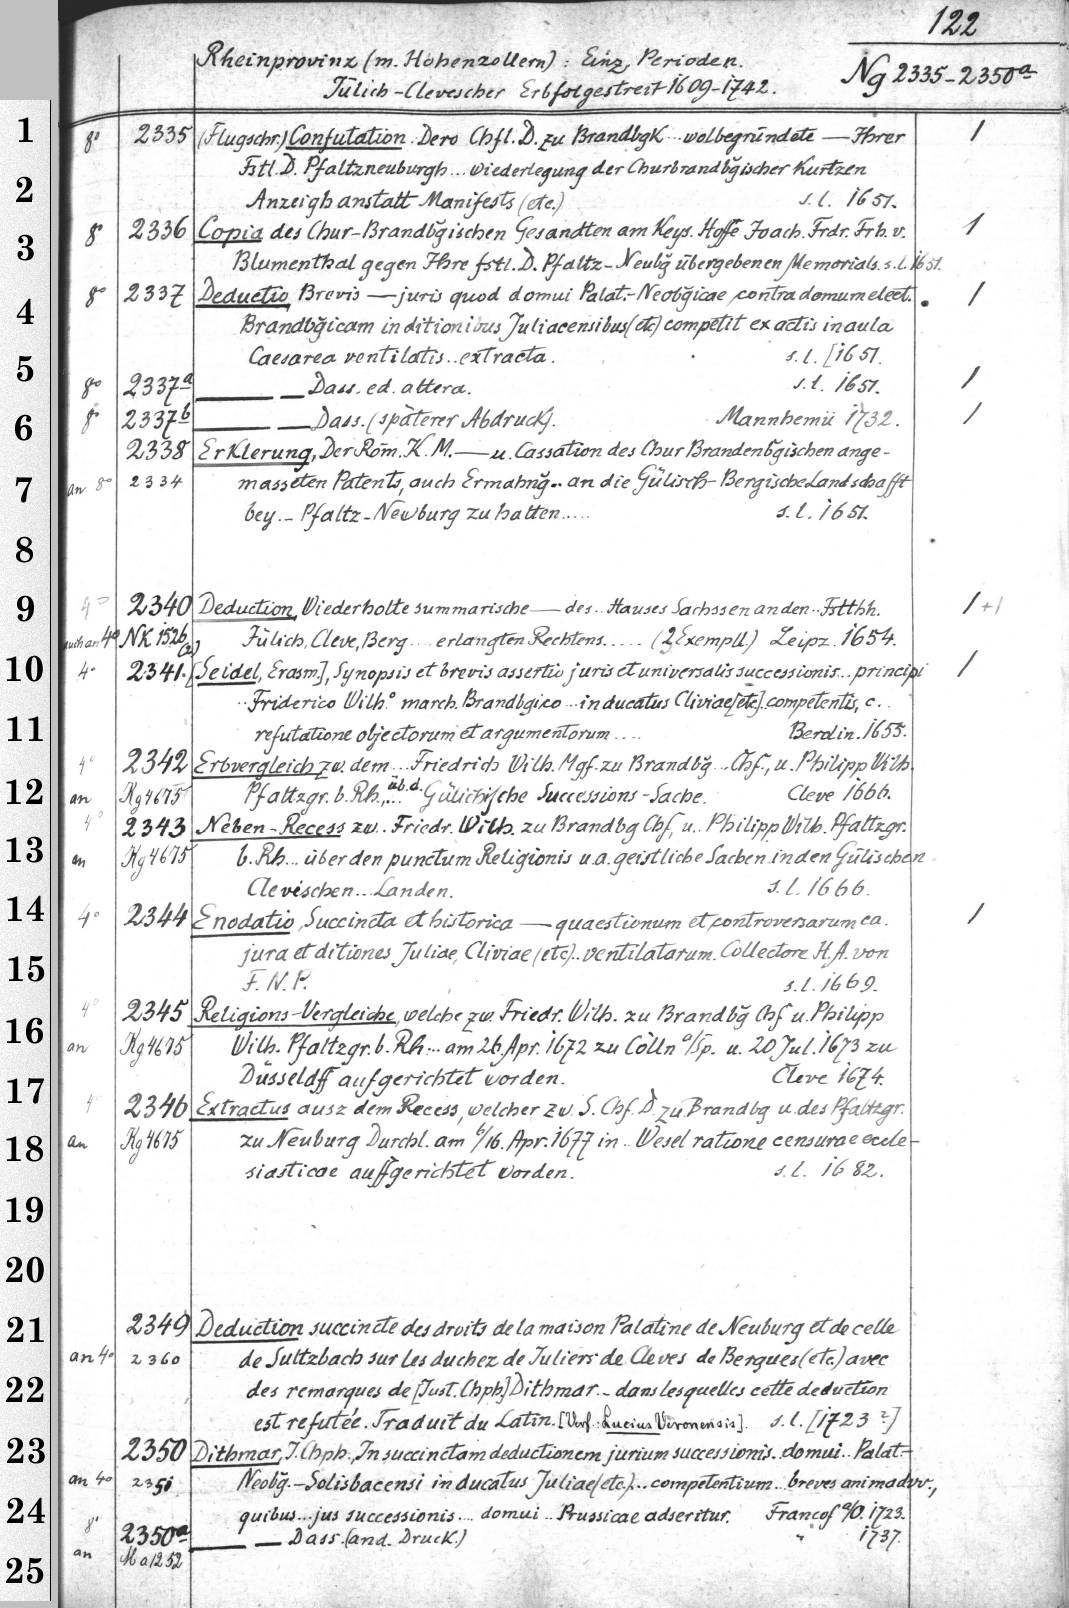 122
Rheinprovinz (m. Hohenzollern) : Einz. Perioden.
Ng 2335-2350a
Jülich-Clevescher Erbfolgestreit 1609-1742.
1
8° 2335 (Flugschr.) Confutation. Dero Chfl. D. zu BrandbgK... wolbegründete — Ihrer 1
Fstl. D. Pfaltzneuburgh... wiederlegung der Churbrandbg̃ischer Kurtzen
2
Anzeigh anstatt Manifests (etc.) s. l. 1651.
8° 2336 Copia des Chur-Brandbg̃ischen Gesandten am Keys. Hoffe Joach. Frdr. Frh. v. 1
3
Blumenthal gegen Ihre fstl. D. Pfaltz-Neubg̃ übergebenen Memorials. s. l. 1651.
8° 2337 Deductio, Brevis — juris quod domui Palat.-Neobg̃icae contra domum elect. 1
4
Brandbg̃icam in ditionibus Juliacensibus (etc) competit ex actis in aula
Caesarea ventilatis.. extracta. s. l. [1651.
5
8° 2337a — — Dass. ed. altera. s. l. 1651. 1
8° 2337b — — Dass. (späterer Abdruck). Mannhemii 1732. 1
6
2338 Erklerung, Der Röm. K. M. — u. Cassation des Chur Brandenbg̃ischen ange-
7
an 8° 2334 masseten Patents, auch Ermahng̃.. an die Gülisch-Bergische Landschafft
bey.- Pfaltz-Newburg zu halten..... s. l. 1651.
8
9
4° 2340 Deduction, Wiederholte summarische — des.. Hauses Sachssen an den.. Fstthh. 1 +1
auch an 4° NK 152b (2) Jülich, Cleve, Berg... erlangten Rechtens..... (2 Exempll.) Leipz. 1654.
10
4° 2341. [Seidel, Erasm.], Synopsis et brevis assertio juris et universalis successionis... principi 1
..Friderico Wilh° march. Brandbgico... in ducatus Cliviae [etc]. competentis, c.
11
refutatione objectorum et argumentorum.... Berolin. 1655.
4° 2342 Erbvergleich zw. dem... Friedrich Wilh. Mgf. zu Brandbg̃... Chf., u. Philipp Wilh.
12
an Kg 4675 Pfaltzgr. b. Rh.,... üb. d. Gülichische Successions-Sache. Cleve 1666.
4° 2343 Neben-Recess zw.. Friedr. Wilh. zu Brandbg Chf, u. Philipp Wilh. Pfaltzgr.
13
an Kg 4675 b. Rh... über den punctum Religionis u. a. geistliche Sachen in den Gülischen
Clevischen... Landen. s. l. 1666.
14
4° 2344 Enodatio, Succincta et historica — quaestionum et controversarum ca. 1
jura et ditiones Juliae, Cliviae (etc).. ventilatarum. Collectore H. A. von
15
F. N. P. s. l. 1669.
4° 2345 Religions-Vergleiche, welche zw. Friedr. Wilh. zu Brandbg̃ Chf u. Philipp
16
an Kg 4675 Wilh. Pfaltzgr. b. Rh... am 26. Apr. 1672 zu Cölln a/Sp. u. 20 Jul. 1673 zu
Düsseldff aufgerichtet worden. Cleve 1674.
17
4° 2346 Extractus ausz dem Recess, welcher zw. S. Chf. D. zu Brandbg u. des Pfaltzgr.
18
an Kg 4675 zu Neuburg Durchl. am 6/16. Apr. 1677 in.. Wesel ratione censurae eccle-
siasticae auffgerichtet worden. s. l. 1682.
19
20
21
2349 Deduction succincte des droits de la maison Palatine de Neuburg et de celle
an 4° 2360 de Sultzbach sur les duchez de Juliers de Cleves de Bergues (etc.) avec
22
des remarques de [Just. Chph.] Dithmar.- dans lesquelles cette deduction
est refutée. Traduit du Latin. [Verf.: Lucius Veronensis]. s. l. [1723 ?]
23
2350 Dithmar, J. Chph., In succinctam deductionem jurium successionis.. domui.. Palat.-
an 4° 2350 Neobg̃.-Solisbacensi in ducatus Juliae (etc.)... competentium... breves animadvv.,
24
quibus... jus successionis.... domui.. Prussicae adseritur. Francof a/O. 1723.
8° 2350a — — Dass. (and. Druck.) " 1737.
an Ma 1252
25